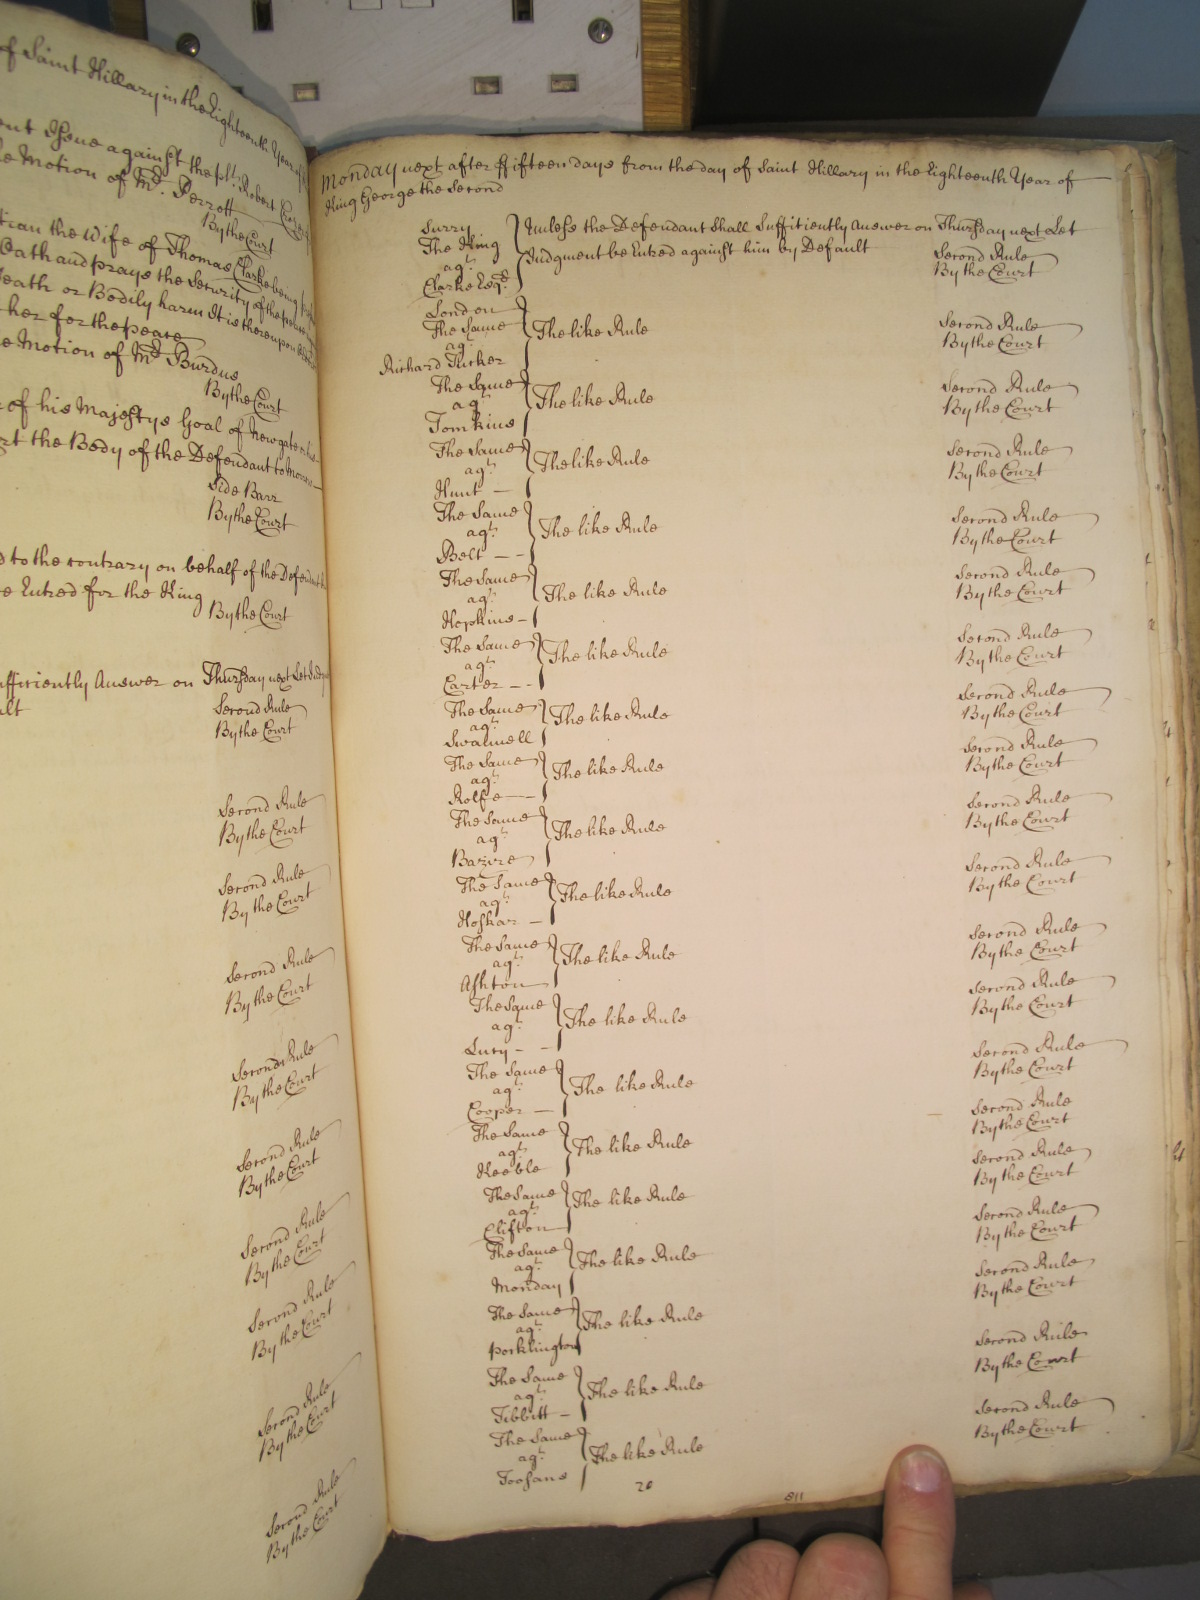 of Saint Hillary in the Eighteenth Year of
against the pl. Robert
Motion of Mr. Perrott
By the Court
the Wife of Thomas Clarke being
Oath and prays the Security of the
Death or Bodily harm It is thereupon
her for the peace
Motion of Mr. Burdus
By the Court
of his Majestys Goal of Newgate
the Body of the Defendant to
Side Barr
By the Court
to the contrary on behalf of the Defendant
Entred for the King
By the Court
Answer on Thursday next Let
Second Rule
By the Court
Second Rule
By the Court
Second Rule
By the Court
Second Rule
By the Court
Second Rule
By the Court
Second Rule
By the Court
Second Rule
By the Court
Second Rule
By the Court
Second Rule
By the Court
Second Rule
By the Court
Monday next after ffifteen days from the day of Saint Hillary in the Eighteenth Year of
King George the Second
Surry
The King
agt.
Clarke Esqr.
Unless the Defendant Shall Sufficiently Answer on Thursday next Let
Judgment be Entred against him by Default
Second Rule
By the Court
London
The Same
agt.
Richard Tucker
The like Rule
Second Rule
By the Court
The Same
agt.
Tomkins
The like Rule
Second Rule
By the Court
The Same
agt.
Hunt
The like Rule
Second Rule
By the Court
The Same
agt.
Belt
The like Rule
Second Rule
By the Court
The Same
agt.
Hopkins
The like Rule
Second Rule
By the Court
The Same
agt.
Carter
The like Rule
Second Rule
By the Court
The Same
agt.
Swalwell
The like Rule
Second Rule
By the Court
The Same
agt.
Rolfe
The like Rule
Second Rule
By the Court
The Same
agt.
Bazire
The like Rule
Second Rule
By the Court
The Same
agt.
Hoskar
The like Rule
Second Rule
By the Court
The Same
agt.
Ashton
The like Rule
Second Rule
By the Court
The Same
agt.
Lucy
The like Rule
Second Rule
By the Court
The Same
agt.
Cooper
The like Rule
Second Rule
By the Court
The Same
agt.
Keeble
The like Rule
Second Rule
By the Court
The Same
agt.
Clifton
The like Rule
Second Rule
By the Court
The Same
agt.
Monday
The like Rule
Second Rule
By the Court
The Same
agt.
Pocklington
The like Rule
Second Rule
By the Court
The Same
agt.
Tibbitt
The like Rule
Second Rule
By the Court
The Same
agt.
The like Rule
Second Rule
By the Court
20
811